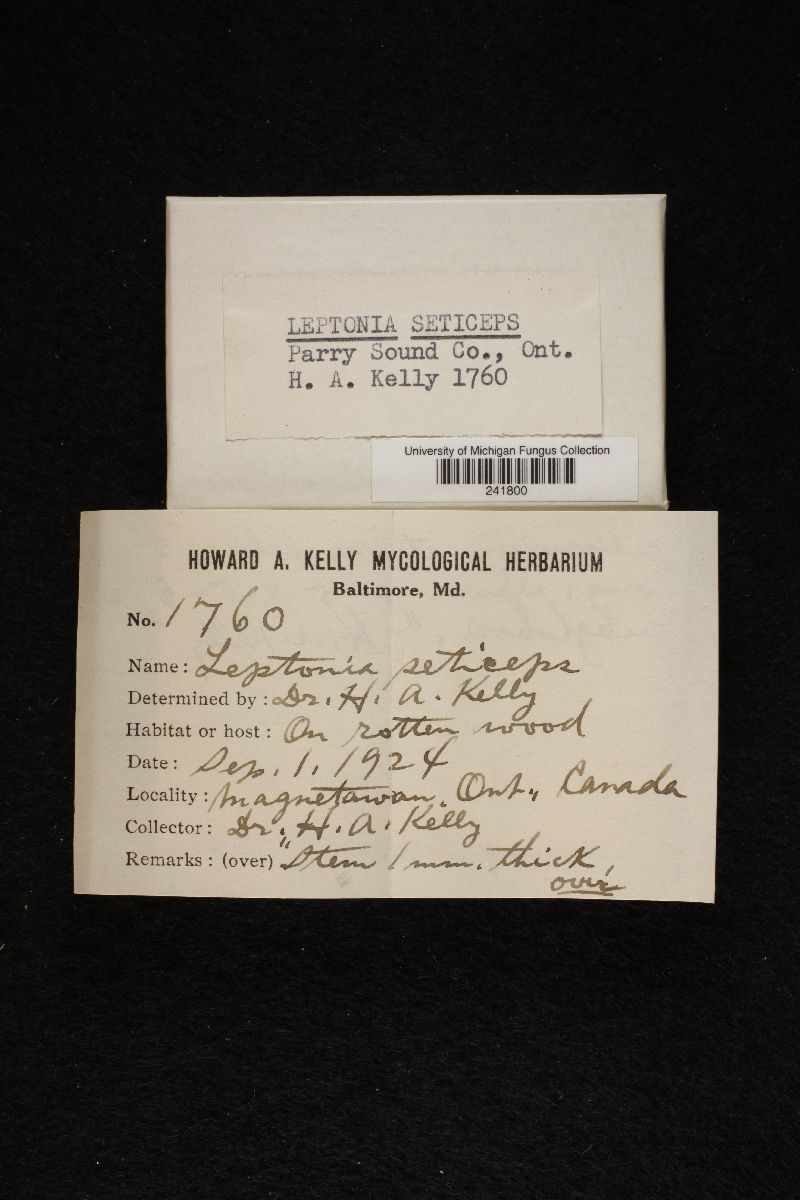 LEPTONIA SETICEPS
Parry Sound Co., Ont.
H. A. Kelly 1760
University of Michigan Fungus Collection
241800
HOWARD A. KELLY MYCOLOGICAL HERBARIUM
Baltimore, Md.
No. 1760
Name: Leptonia seticeps
Determined by: Dr. H. A. Kelly
Habitat or host: On rotten wood
Date: Sep. 1, 1924
Locality: Magnetawan, Ont., Canada
Collector: Dr. H. A. Kelly
Remarks: (over) "Stem 1 mm. thick,
over